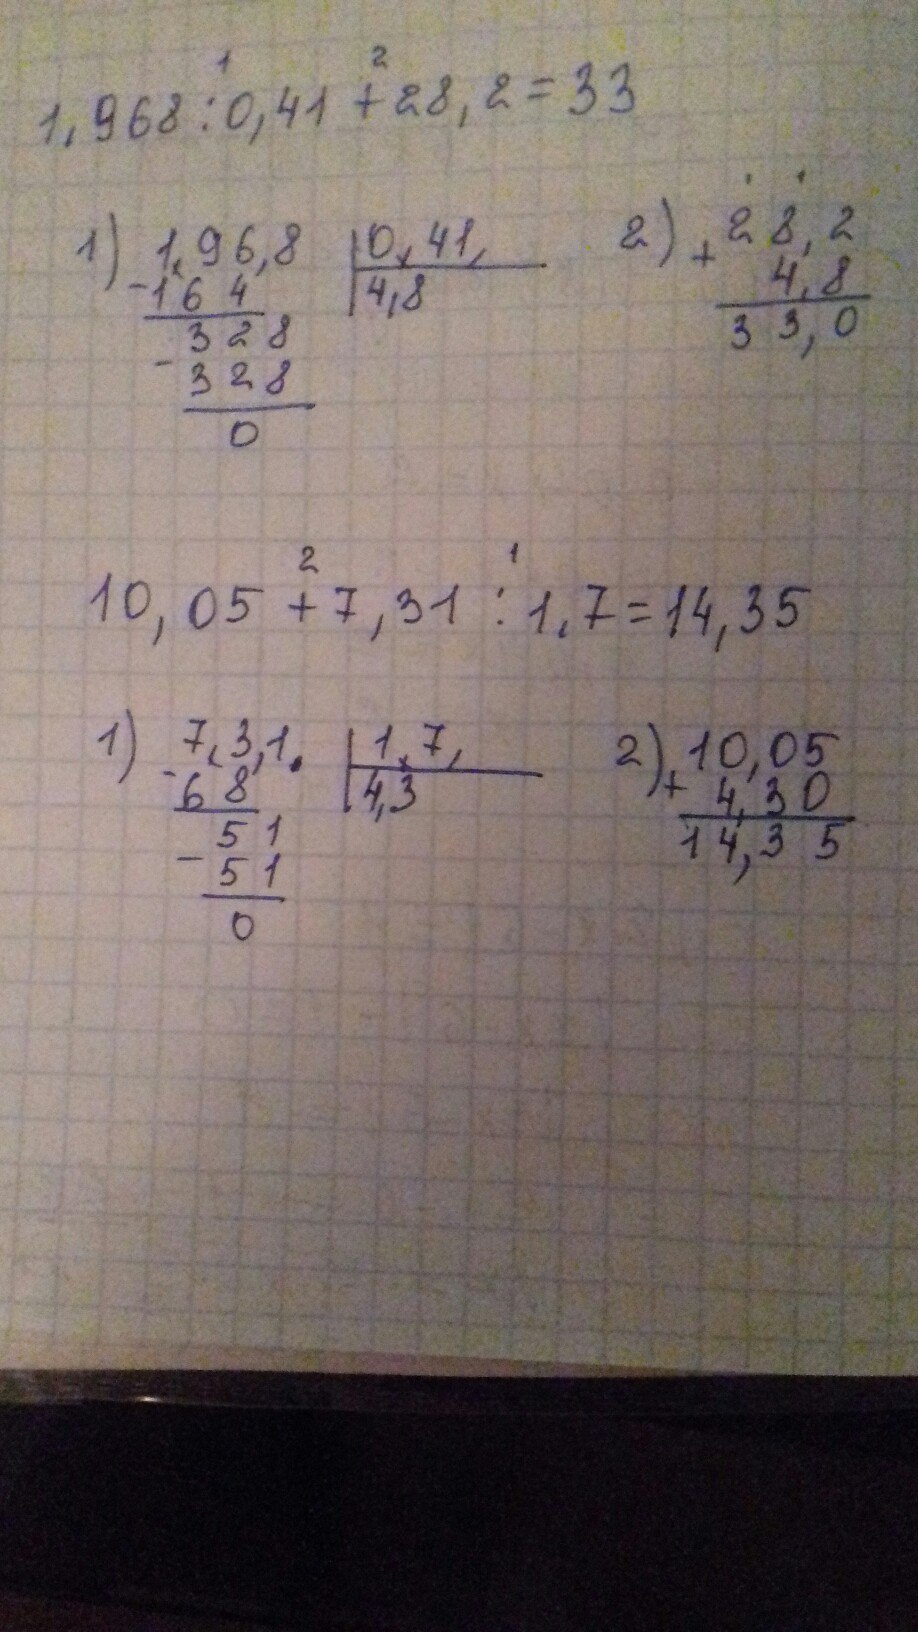 1 2
1,968 : 0,41 + 28,2 = 33
1) 1,96,8 | 0,41, 2) + 28,2
- 164 | 4,8 4,8
328 33,0
- 328
0
2 1
10,05 + 7,31 : 1,7 = 14,35
1) 7,3,1. | 1,7, 2) + 10,05
- 68 | 4,3 4,30
51 14,35
- 51
0